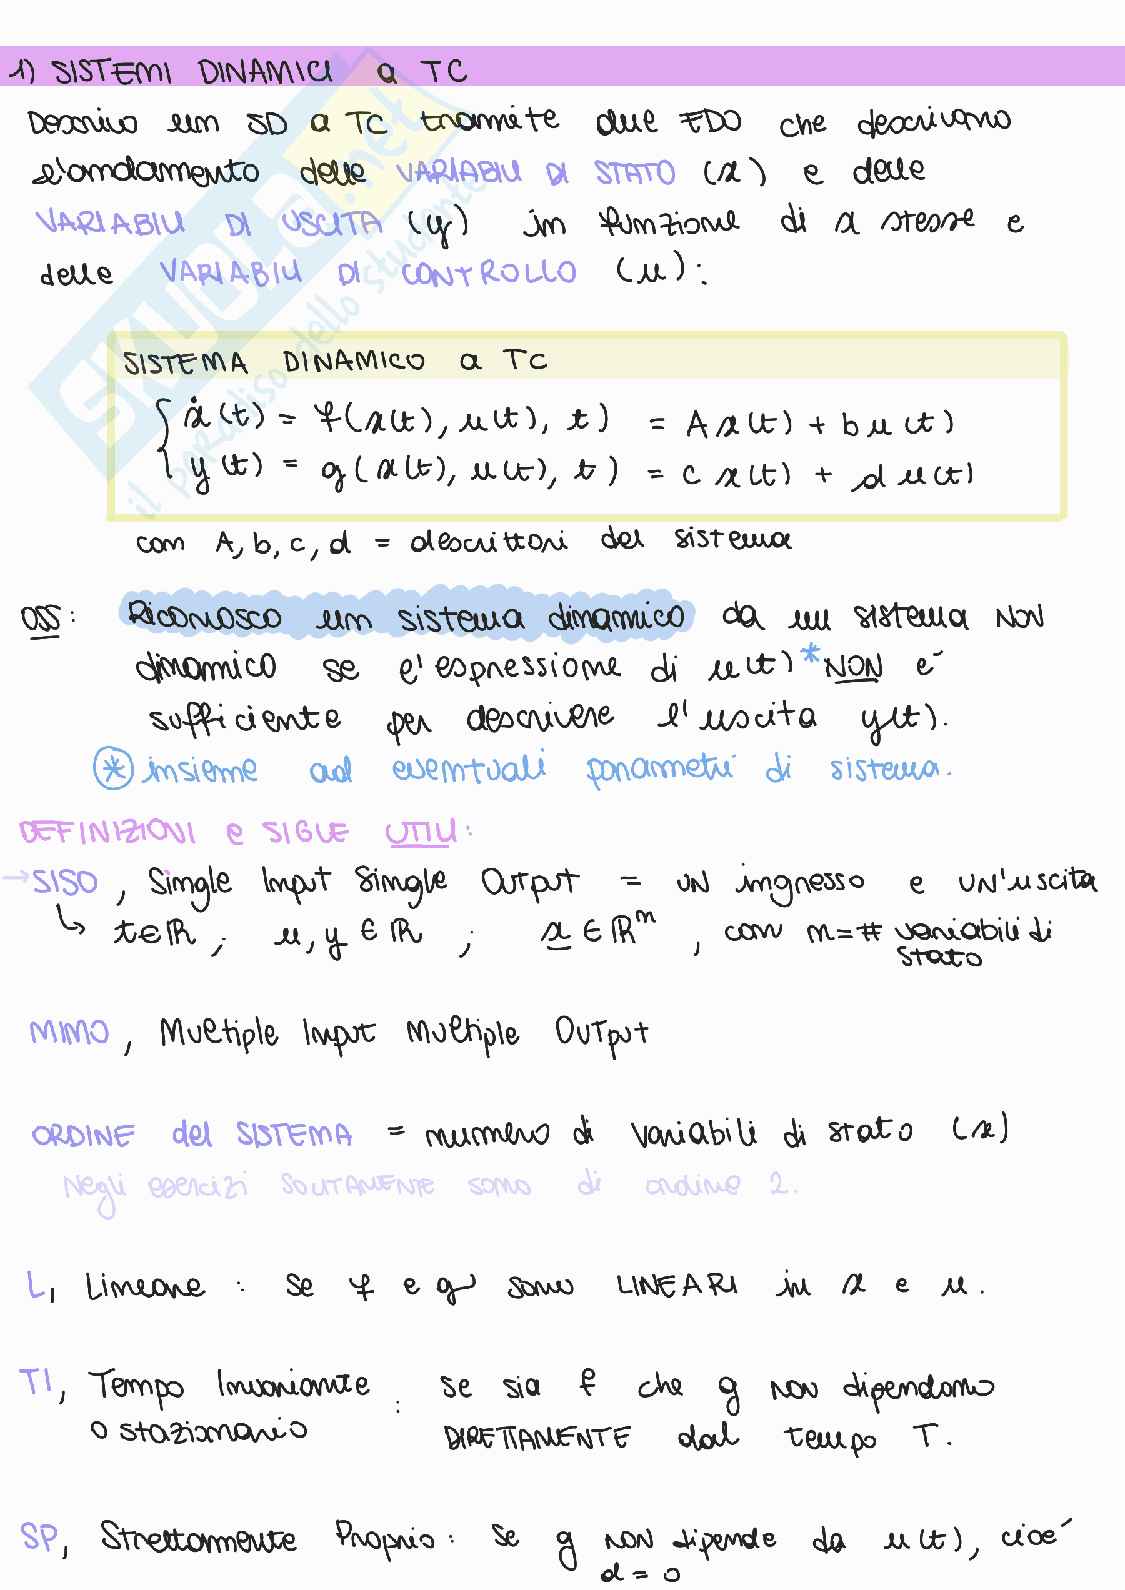 1) SISTEMI DINAMICI a TC
Descrivo un SD a TC tramite due EDO che descrivono
l'andamento delle VARIABILI DI STATO (x) e delle
VARIABILI DI USCITA (y) in funzione di x stesse e
delle VARIABILI DI CONTROLLO (u):
SISTEMA DINAMICO a TC
{ ẋ(t) = f(x(t), u(t), t) = A x(t) + b u(t)
y(t) = g(x(t), u(t), t) = c x(t) + d u(t)
con A, b, c, d = descrittori del sistema
OSS: Riconosco un sistema dinamico da un sistema NON
dinamico se l'espressione di u(t)* NON é
sufficiente per descrivere l'uscita y(t).
* insieme ad eventuali parametri di sistema.
DEFINIZIONI e SIGLE UTILI:
→ SISO, Single Input Single Output = UN ingresso e UN'uscita
↳ t∈ℝ; u, y ∈ ℝ; x ∈ ℝⁿ, con n = # variabili di
stato
MIMO, Multiple Input Multiple Output
ORDINE del SISTEMA = numero di variabili di stato (x)
Negli esercizi SOLITAMENTE sono di ordine 2.
L, Lineare : se f e g sono LINEARI in x e u.
TI, Tempo Invariante : se sia f che g non dipendono
o stazionario DIRETTAMENTE dal tempo T.
SP, Strettamente Proprio: se g NON dipende da u(t), cioé
d = 0
SKUOLA.net
il paradiso dello studente